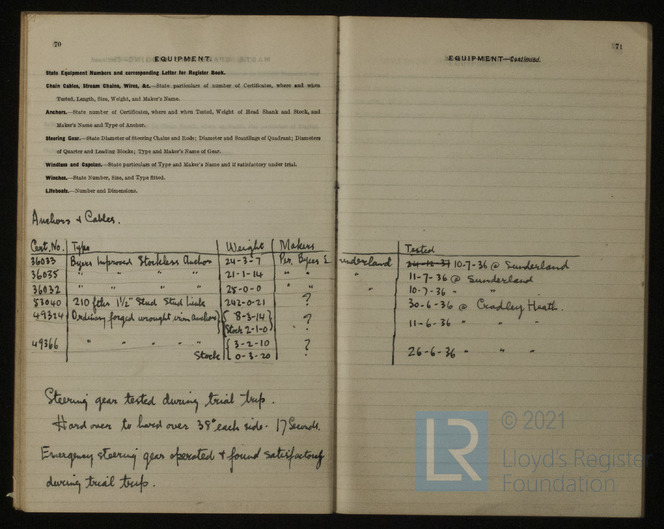 70
EQUIPMENT.
State Equipment Numbers and corresponding Letter for Register Book.
Chain Cables, Stream Chains, Wires, &c.—State particulars of number of Certificates, where and when
Tested, Length, Size, Weight, and Maker's Name.
Anchors.—State number of Certificates, where and when Tested, Weight of Head Shank and Stock, and
Maker's Name and Type of Anchor.
Steering Gear.—State Diameter of Steering Chains and Rods; Diameter and Scantlings of Quadrant; Diameters
of Quarter and Leading Blocks; Type and Maker's Name of Gear.
Windlass and Capstan.—State particulars of Type and Maker's Name and if satisfactory under trial.
Winches.—State Number, Size, and Type fitted.
Lifeboats.—Number and Dimensions.
Anchors & Cables.
Cert. No. Type Weight Makers
36033 Byers Improved Stockless Anchor 24-3-7 Byers Sunderland
36035 " " " " 21-1-14 " " "
36032 " " " " 25-0-0 " " "
53040 210 fths 1½" Stud Link 242-0-21 ?
49324 Ordinary forged wrought iron Anchor { 8-3-14 } ?
Stock 2-1-0
49366 " " " " { 3-2-10 ?
Stock 0-3-20 ?
Steering gear tested during trial trip.
Hard over to hard over 38° each side - 17 Seconds.
Emergency steering gear operated & found satisfactory
during trial trip.
71
EQUIPMENT—Continued.
Tested
10-7-36 @ Sunderland
11-7-36 @ Sunderland
10-7-36 " "
30-6-36 @ Cradley Heath.
11-6-36 " " "
26-6-36 " " "
LR
© 2021
Lloyd's Register
Foundation